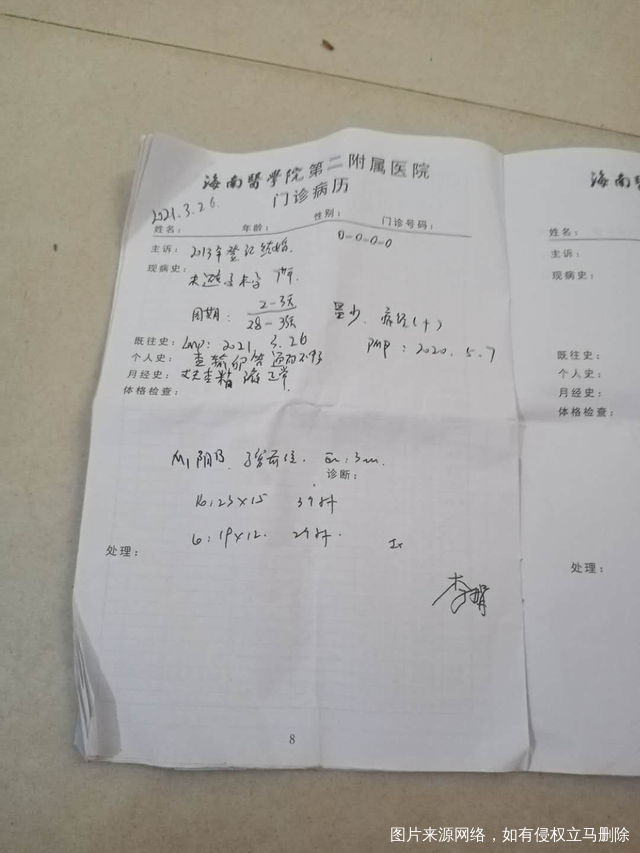 海南医学院第二附属医院
门诊病历
2021.3.26.
姓名： 年龄： 性别： 门诊号码：
0-0-0-0
主诉：2013年登记结婚
现病史：未避孕未孕
周期：2-3天 量少、痛经(+)
28-35天
既往史：Lmp：2021.3.26 PMP：2020.5.7
个人史：查输卵管通而不畅
月经史：丈夫查精液正常
体格检查：
阴B、子宫前位. En：3m.
诊断：
R：23×15 3个
L：19×12. 2个
处理：
8
海南医
姓名：
主诉：
现病史：
既往史：
个人史：
月经史：
体格检查：
处理：
图片来源网络，如有侵权立马删除